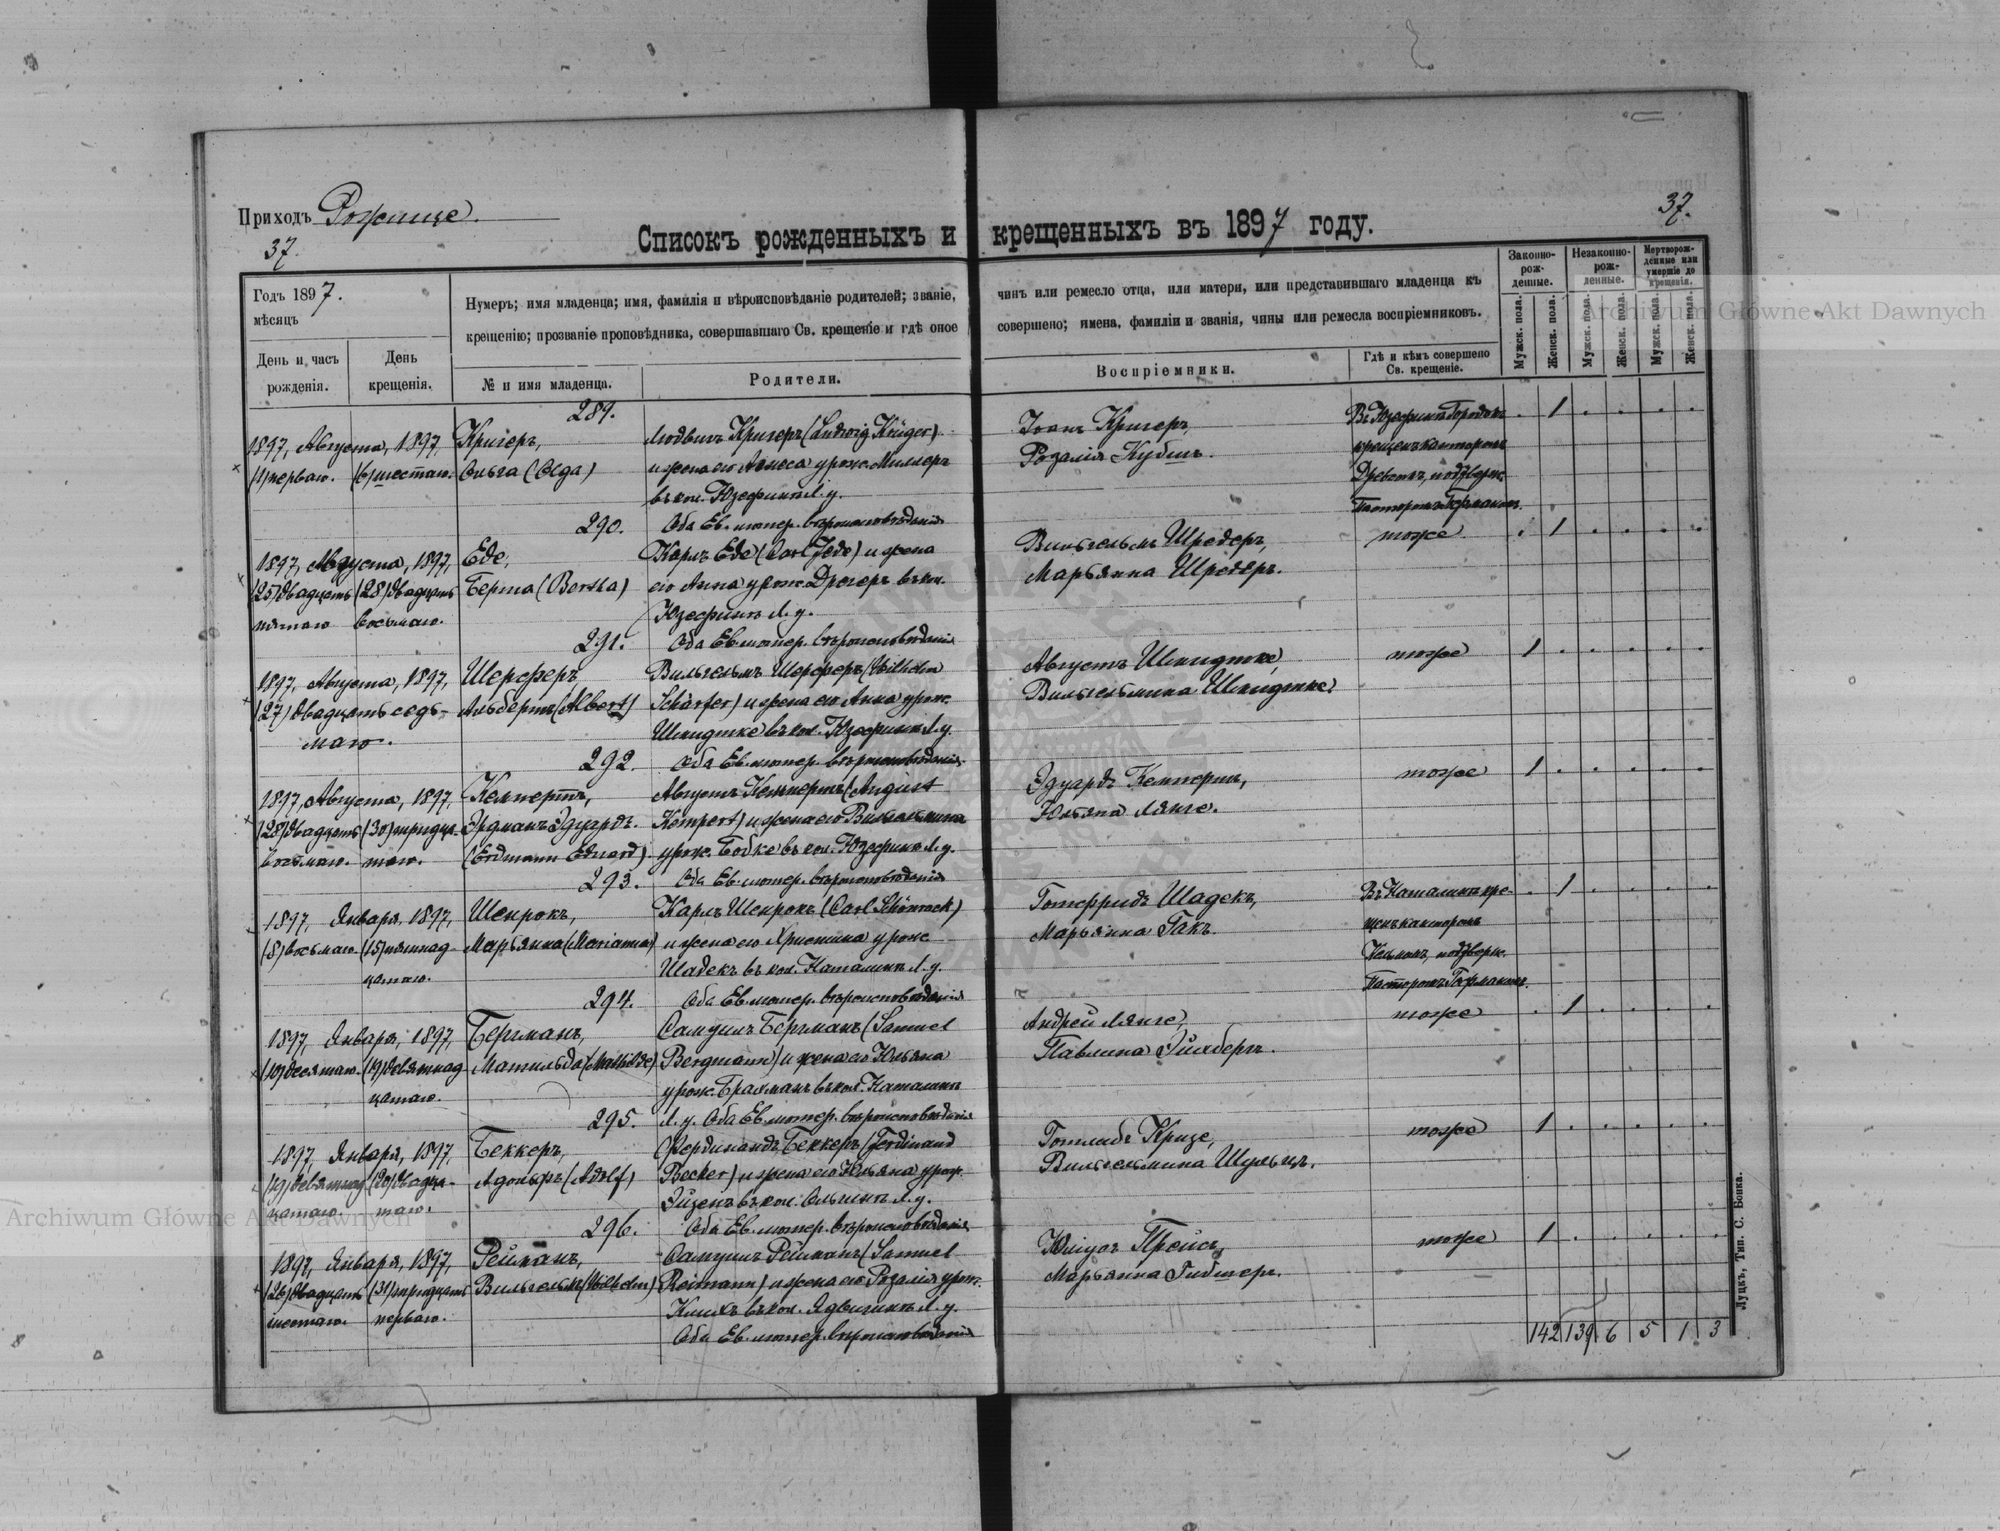 Приходъ Рожище.
37.
37.
Списокъ рожденныхъ и крещенныхъ въ 1897 году.
Годъ 1897.
мѣсяцъ
День и часъ рожденія.
День крещенія.
Нумеръ; имя младенца; имя, фамилія и вѣроисповѣданіе родителей; званіе,
крещенію; прозваніе проповѣдника, совершавшаго Св. крещеніе и гдѣ оное
№ и имя младенца.
Родители.
чинъ или ремесло отца, или матери, или представившаго младенца къ
совершено; имена, фамиліи и званія, чины или ремесла воспріемниковъ.
Воспріемники.
Гдѣ и кѣмъ совершено
Св. крещеніе.
Законно-
рож-
денные.
Незаконно-
рож-
денные.
Мертворож-
денные или
умершіе до
крещенія.
Мужск. пола.
Женск. пола.
Мужск. пола.
Женск. пола.
Мужск. пола.
Женск. пола.
289.
1897, Августа, 1897,
(1) перваго. (6) шестаго.
Кригеръ,
Ольга (Olga)
Людвигъ Кригеръ (Ludwig Krüger)
и жена его Агнеса урож. Миллеръ
въ кол. Юзефинъ Л. у.
Оба Ев. лютер. вѣроисповѣданія
Іоанъ Кригеръ,
Розалія Кубшъ.
Въ Юзефинѣ Городокъ
крещенъ канторомъ
подтверж.
Пасторомъ Германомъ.
. 1 . . . .
290.
1897, Августа, 1897,
(25) двадцать (28) двадцать
пятаго восьмаго.
Еде,
Берта (Bertha)
Карлъ Еде (Carl Jede) и жена
его Анна урож. Дрегеръ въ кол.
Юзефинъ Л. у.
Оба Ев. лютер. вѣроисповѣданія
Вильгельмъ Шредеръ,
Марьянна Шредеръ.
тоже
. 1 . . . .
291.
1897, Августа, 1897,
(27) двадцать седь-
маго.
Шерферъ
Альбертъ (Albert)
Вильгельмъ Шерферъ (Wilhelm
Schärfer) и жена его Анна урож.
Шмидтке въ кол. Юзефинъ Л. у.
Оба Ев. лютер. вѣроисповѣданія
Августъ Шмидтке,
Вильгельмина Шмидтке.
тоже
1 . . . . .
292.
1897, Августа, 1897,
(28) двадцать (30) тридца-
восьмаго. таго.
Кемпертъ,
Эрдманъ Эдуардъ.
(Erdmann Eduard)
Августъ Кемпертъ (August
Kempert) и жена его Вильгельмина
урож. Бобке въ кол. Юзефинъ Л. у.
Оба Ев. лютер. вѣроисповѣданія
Эдуардъ Кемпертъ,
Юльяна Лянге.
тоже
1 . . . . .
293.
1897, Января, 1897,
(8) восьмаго. (15) пятнад-
цатаго.
Шенрокъ,
Марьянна (Marianna)
Карлъ Шенрокъ (Carl Schönrock)
и жена его Христина урож.
Шадекъ въ кол. Каталинъ Л. у.
Оба Ев. лютер. вѣроисповѣданія
Готфридъ Шадекъ,
Марьянна Гакъ.
Въ Каталинѣ кре-
щенъ канторомъ
подтверж.
Пасторомъ Германомъ.
. 1 . . . .
294.
1897, Января, 1897,
(10) десятаго. (19) девятнад-
цатаго.
Бергманъ,
Матильда (Mathilde)
Самуилъ Бергманъ (Samuel
Bergmann) и жена его Юльяна
урож. Брахманъ въ кол. Каталинъ
Л. у. Оба Ев. лютер. вѣроисповѣданія
Андрей Лянге,
Павлина Эйхбергъ.
тоже
. 1 . . . .
295.
1897, Января, 1897,
(19) девятнад- (20) двадца-
цатаго. таго.
Беккеръ,
Адольфъ (Adolf)
Фердинандъ Беккеръ (Ferdinand
Becker) и жена его Юльяна урож.
Эйзенъ въ кол. Ольгинъ Л. у.
Оба Ев. лютер. вѣроисповѣданія
Готлибъ Кризе,
Вильгельмина Шульцъ.
тоже
1 . . . . .
296.
1897, Января, 1897,
(26) двадцать (31) тридцать
шестаго. перваго.
Рейманъ,
Вильгельмъ (Wilhelm)
Самуилъ Рейманъ (Samuel
Reimann) и жена его Розалія урож.
въ кол. Ядвигинъ Л. у.
Оба Ев. лютер. вѣроисповѣданія
Юліусъ Прейсъ,
Марьянна Гиблеръ.
тоже
1 . . . . .
142 139 6 5 1 3
Луцкъ, Тип. С. Бонка.
Archiwum Główne Akt Dawnych
Archiwum Główne Akt Dawnych